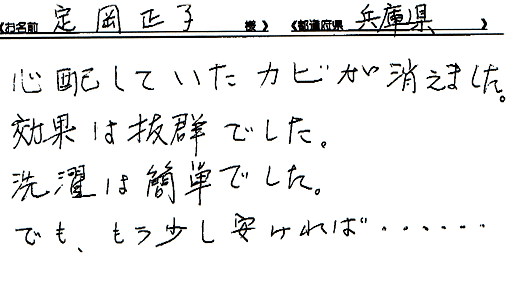 《お名前 定岡正子 様》 《都道府県 兵庫県 》
心配していたカビが消えました。
効果は抜群でした。
洗濯は簡単でした。
でも、もう少し安ければ・・・・・・